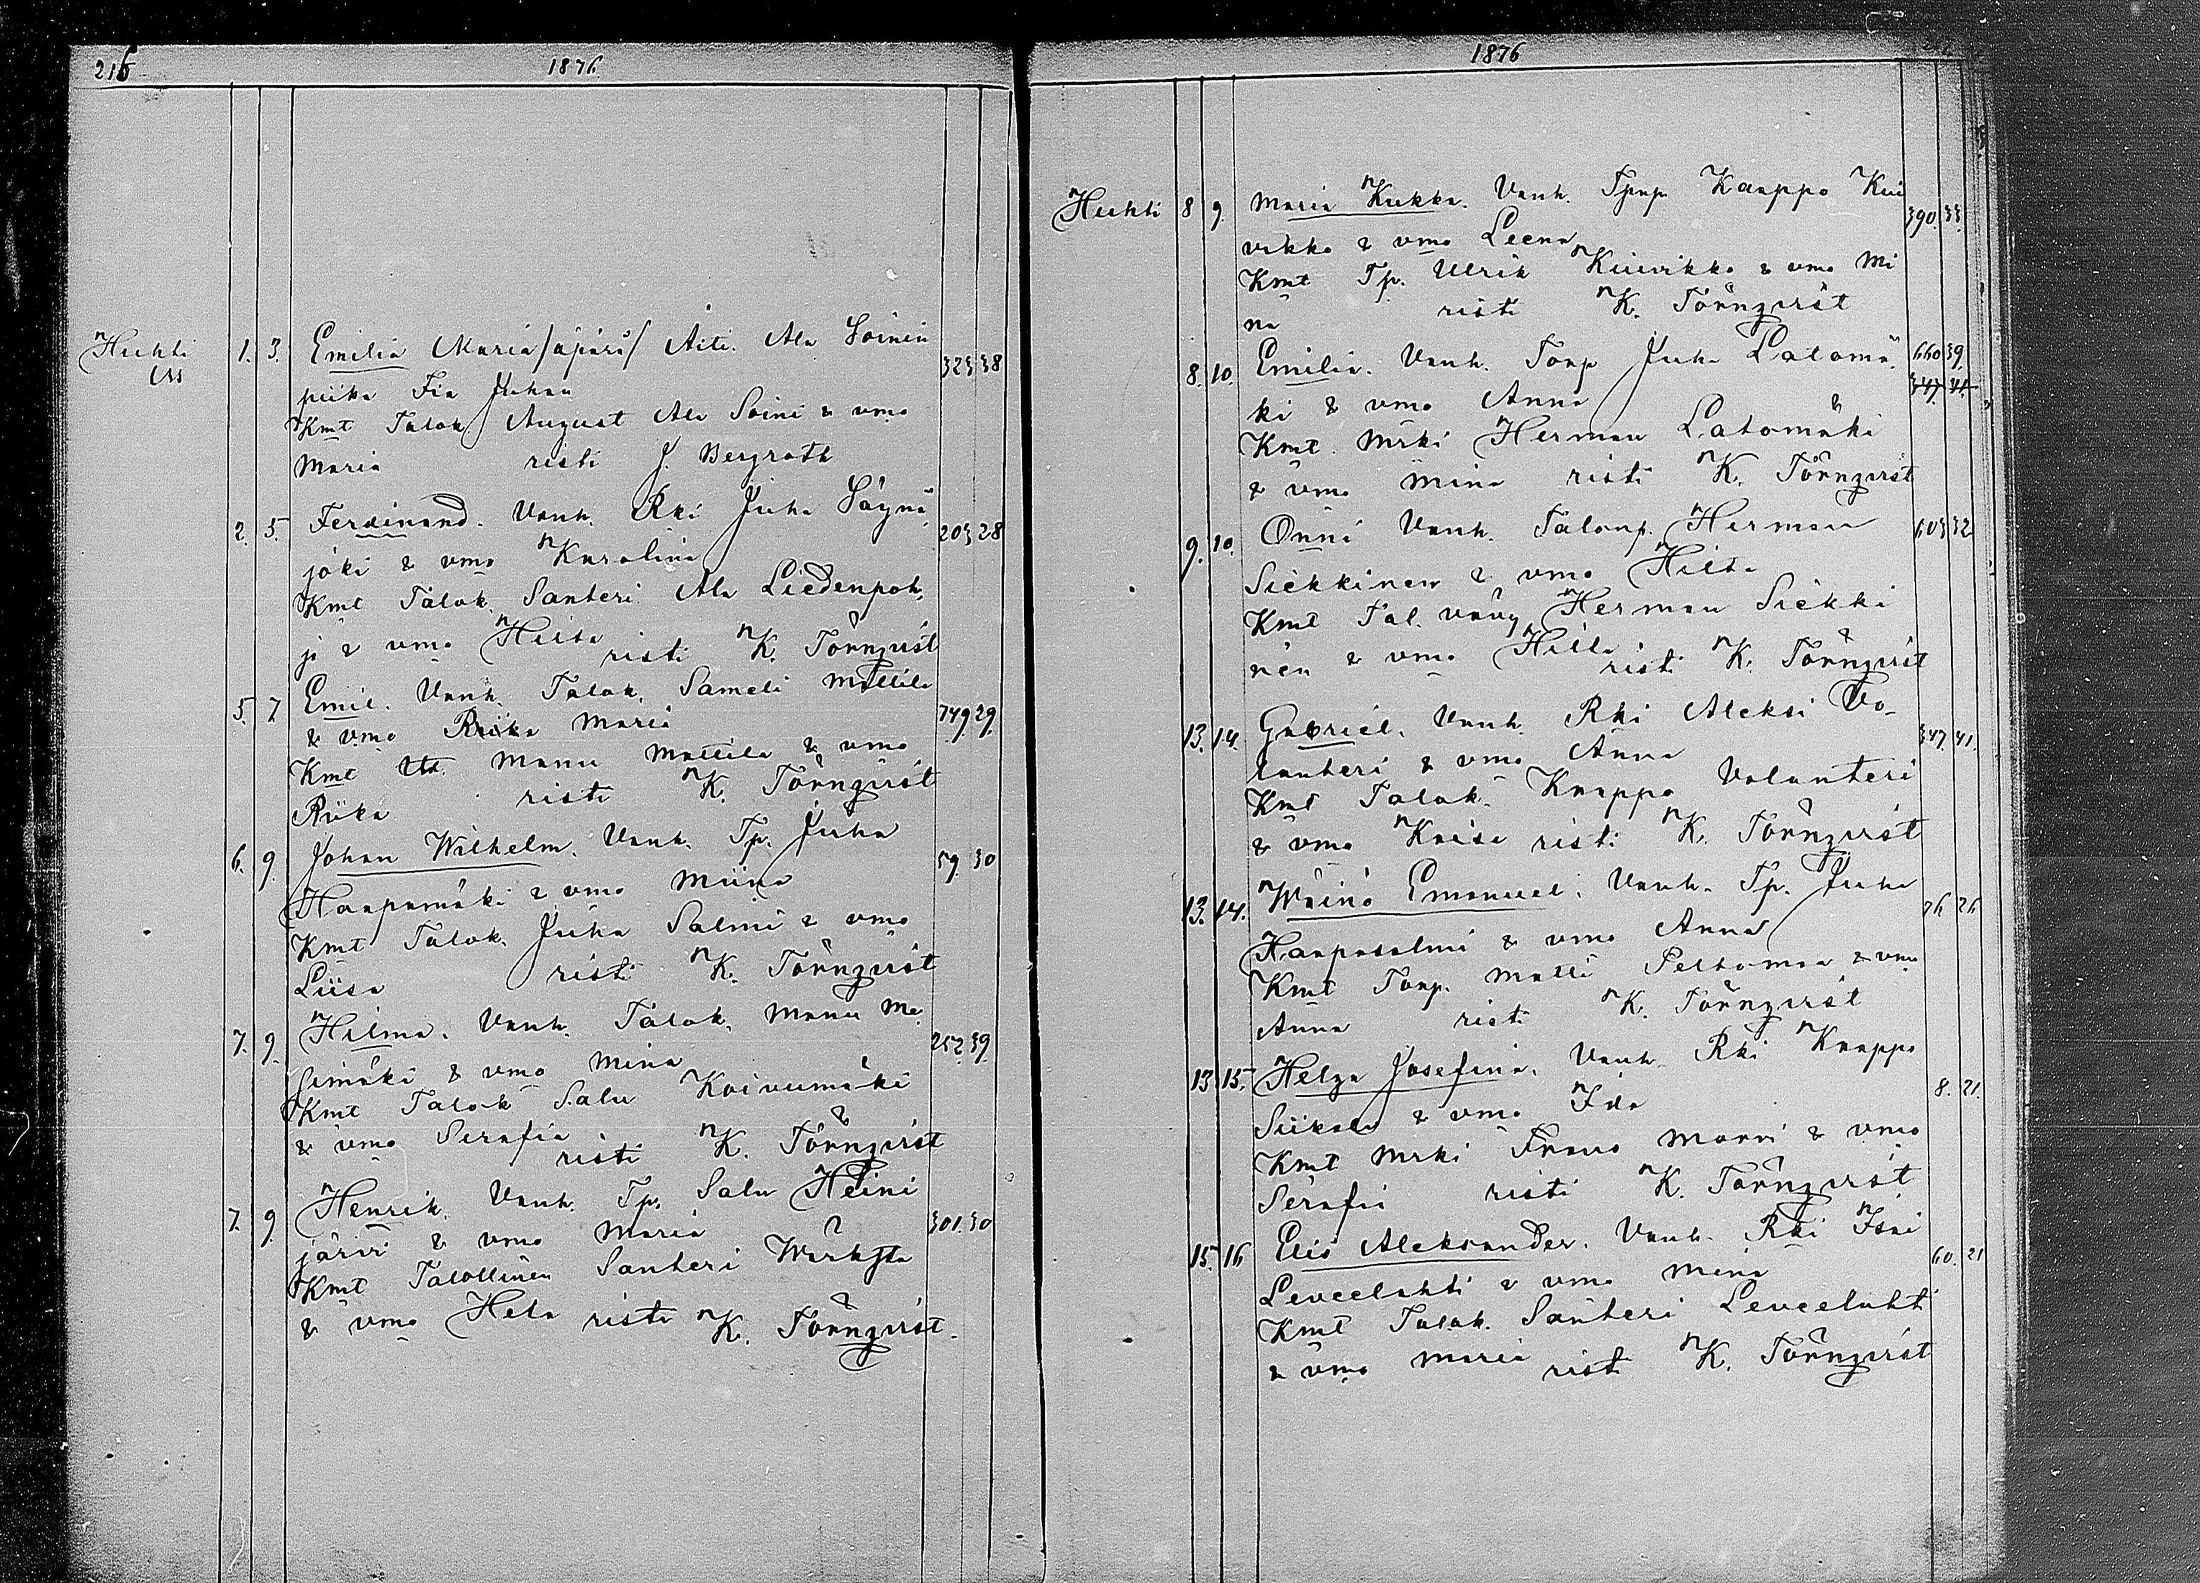 216 1876
Huhti 1. 3. Emilia Maria /äpärä/ Äiti. Ala Soinin 323 38
piika Fia Juhan
Kmt Talok. August Ala Soini & vmo
Maria risti J. Bergroth
2. 5. Ferdinand. Vanh. Rki Juha Säynä 203 28
joki & vmo Karolina
Kmt Talok. Santeri Ala Liedenpoh,
ja & vmo Hilta risti K. Törnqvist
5. 7 Emil. Vanh. Talok. Sameli Mattila 749 29.
& vmo Riika Maria
Kmt Manu Mattila & vmo
Riika risti K. Törnqvist
6. 9. Johan Wilhelm. Vanh. Tp. Juha 59. 30
Haapamäki & vmo Miina
Kmt Talok. Juha Salmi & vmo
Liisa risti K. Törnqvist
7. 9. Hilma. Vanh. Talok. Manu Me 252 39.
simäki & vmo Mina
Kmt Talok Salu Koivumäki
& vmo Serafia risti K. Törnqvist
7. 9. Henrik. Vanh. Tp. Salu Heini 301. 30
järvi & vmo Maria
Kmt Talollinen Santeri
& vmo Heta risti K. Törnqvist.
1876
Huhti 8 9. Maria Kukka. Vanh. Kaappo Kui 390. 33.
vikko & vmo Leena
Kmt Tp. Ulrik Kuivikko & vmo Mi
na risti K. Törnqvist
8. 10. Emilia. Vanh. Torp Juha Latomä 660 39.
347. 41.
ki & vmo Anna
Kmt. Mrki Herman Latomäki
& vmo Mina risti K. Törnqvist
9. 10. Onni Vanh. Talonp. Herman 603 32
Siekkinen & vmo Hilta
Kmt Tal. vävy Herman Siekki
nen & vmo Hilta risti K. Törnqvist
13. 14. Gabriel. Vanh. Rki Aleksi Vo- 347. 41.
lanteri & vmo Anna
Kmt Talok. Kaappo Volanteri
& vmo Kaisa risti K. Törnqvist
13. 14. Wäinö Emanuel. Vanh. Tp. Juha 76 26
Haapasalmi & vmo Anna
Kmt Torp. Matti Peltomaa & vmo
Anna risti K. Törnqvist
13 15. Helga Josefina. Vanh. Rki Kaappo 8. 21.
Siikala & vmo Ida
Kmt Mrki Frans Manni & vmo
Serafia risti K. Törnqvist
15. 16 Elis Aleksander. Vanh. Rki Isai 60. 21
Leveelahti & vmo Mina
Kmt Talok. Santeri Leveelahti
& vmo Maria risti K. Törnqvist